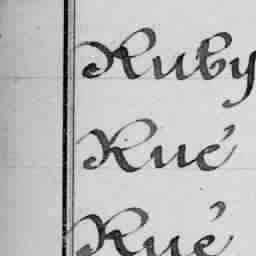 Ruby
Rué
Rué